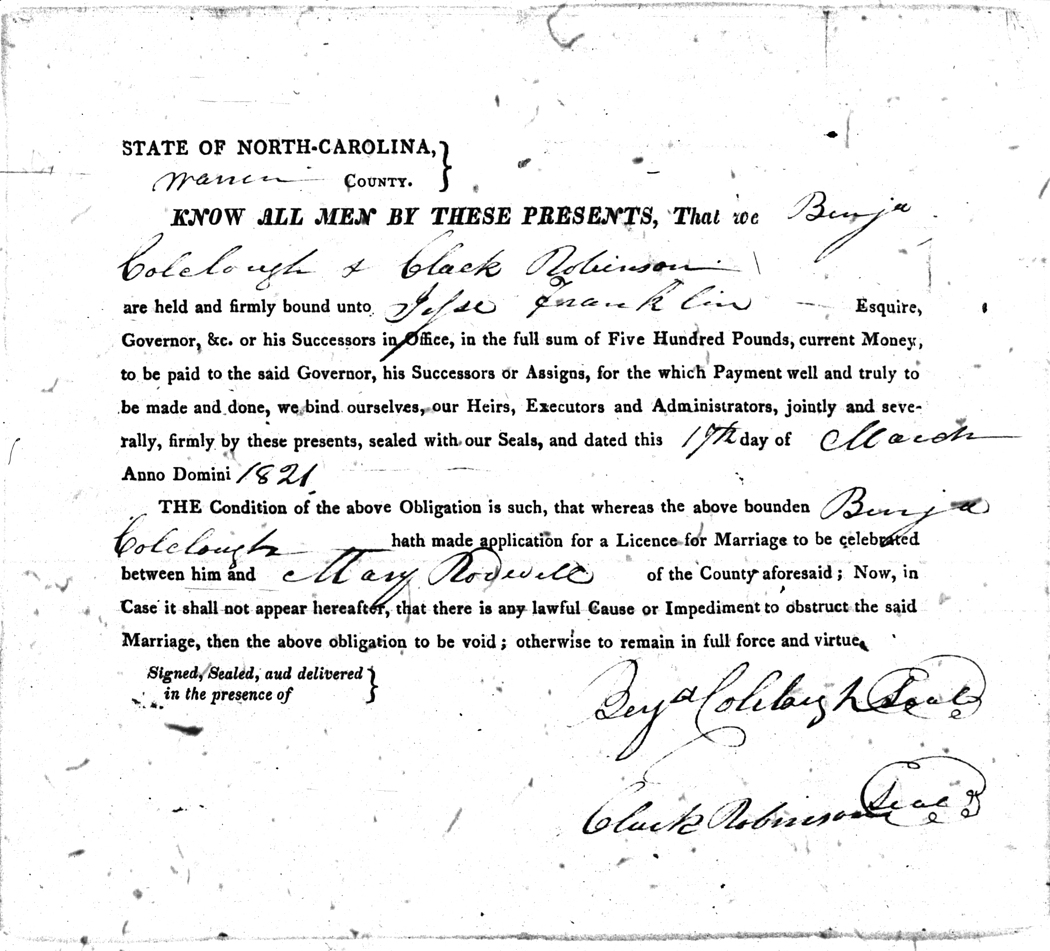 STATE OF NORTH-CAROLINA,
Warren COUNTY.
KNOW ALL MEN BY THESE PRESENTS, That we Benja
Colclough & Clack Robinson
are held and firmly bound unto Jesse Franklin Esquire,
Governor, &c. or his Successors in Office, in the full sum of Five Hundred Pounds, current Money,
to be paid to the said Governor, his Successors or Assigns, for the which Payment well and truly to
be made and done, we bind ourselves, our Heirs, Executors and Administrators, jointly and seve-
rally, firmly by these presents, sealed with our Seals, and dated this 17th day of March
Anno Domini 1821
THE Condition of the above Obligation is such, that whereas the above bounden Benja
Colclough hath made application for a Licence for Marriage to be celebrated
between him and Mary Rodwell of the County aforesaid; Now, in
Case it shall not appear hereafter, that there is any lawful Cause or Impediment to obstruct the said
Marriage, then the above obligation to be void; otherwise to remain in full force and virtue.
Signed, Sealed, aud delivered
in the presence of
Benja Colclough Seal
Clack Robinson Seal